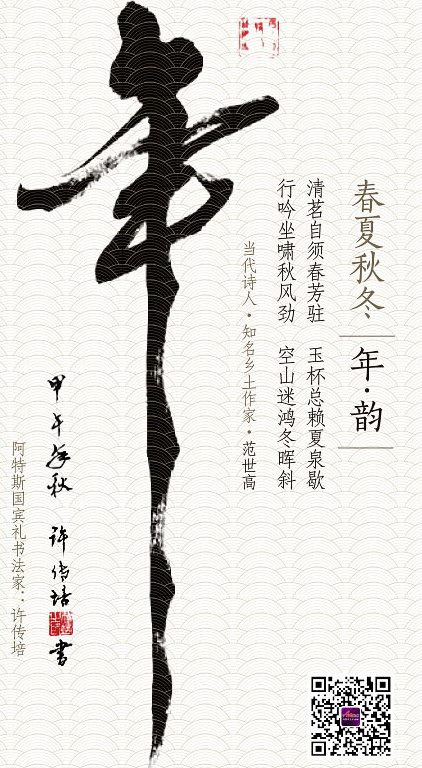 春夏秋冬
年·韵
清茗自须春芳驻 玉杯总赖夏泉歇
行吟坐啸秋风劲 空山迷鸿冬晖斜
当代诗人·知名乡土作家·范世高
年
甲午年秋 许传培 书
阿特斯国宾礼书法家：许传培